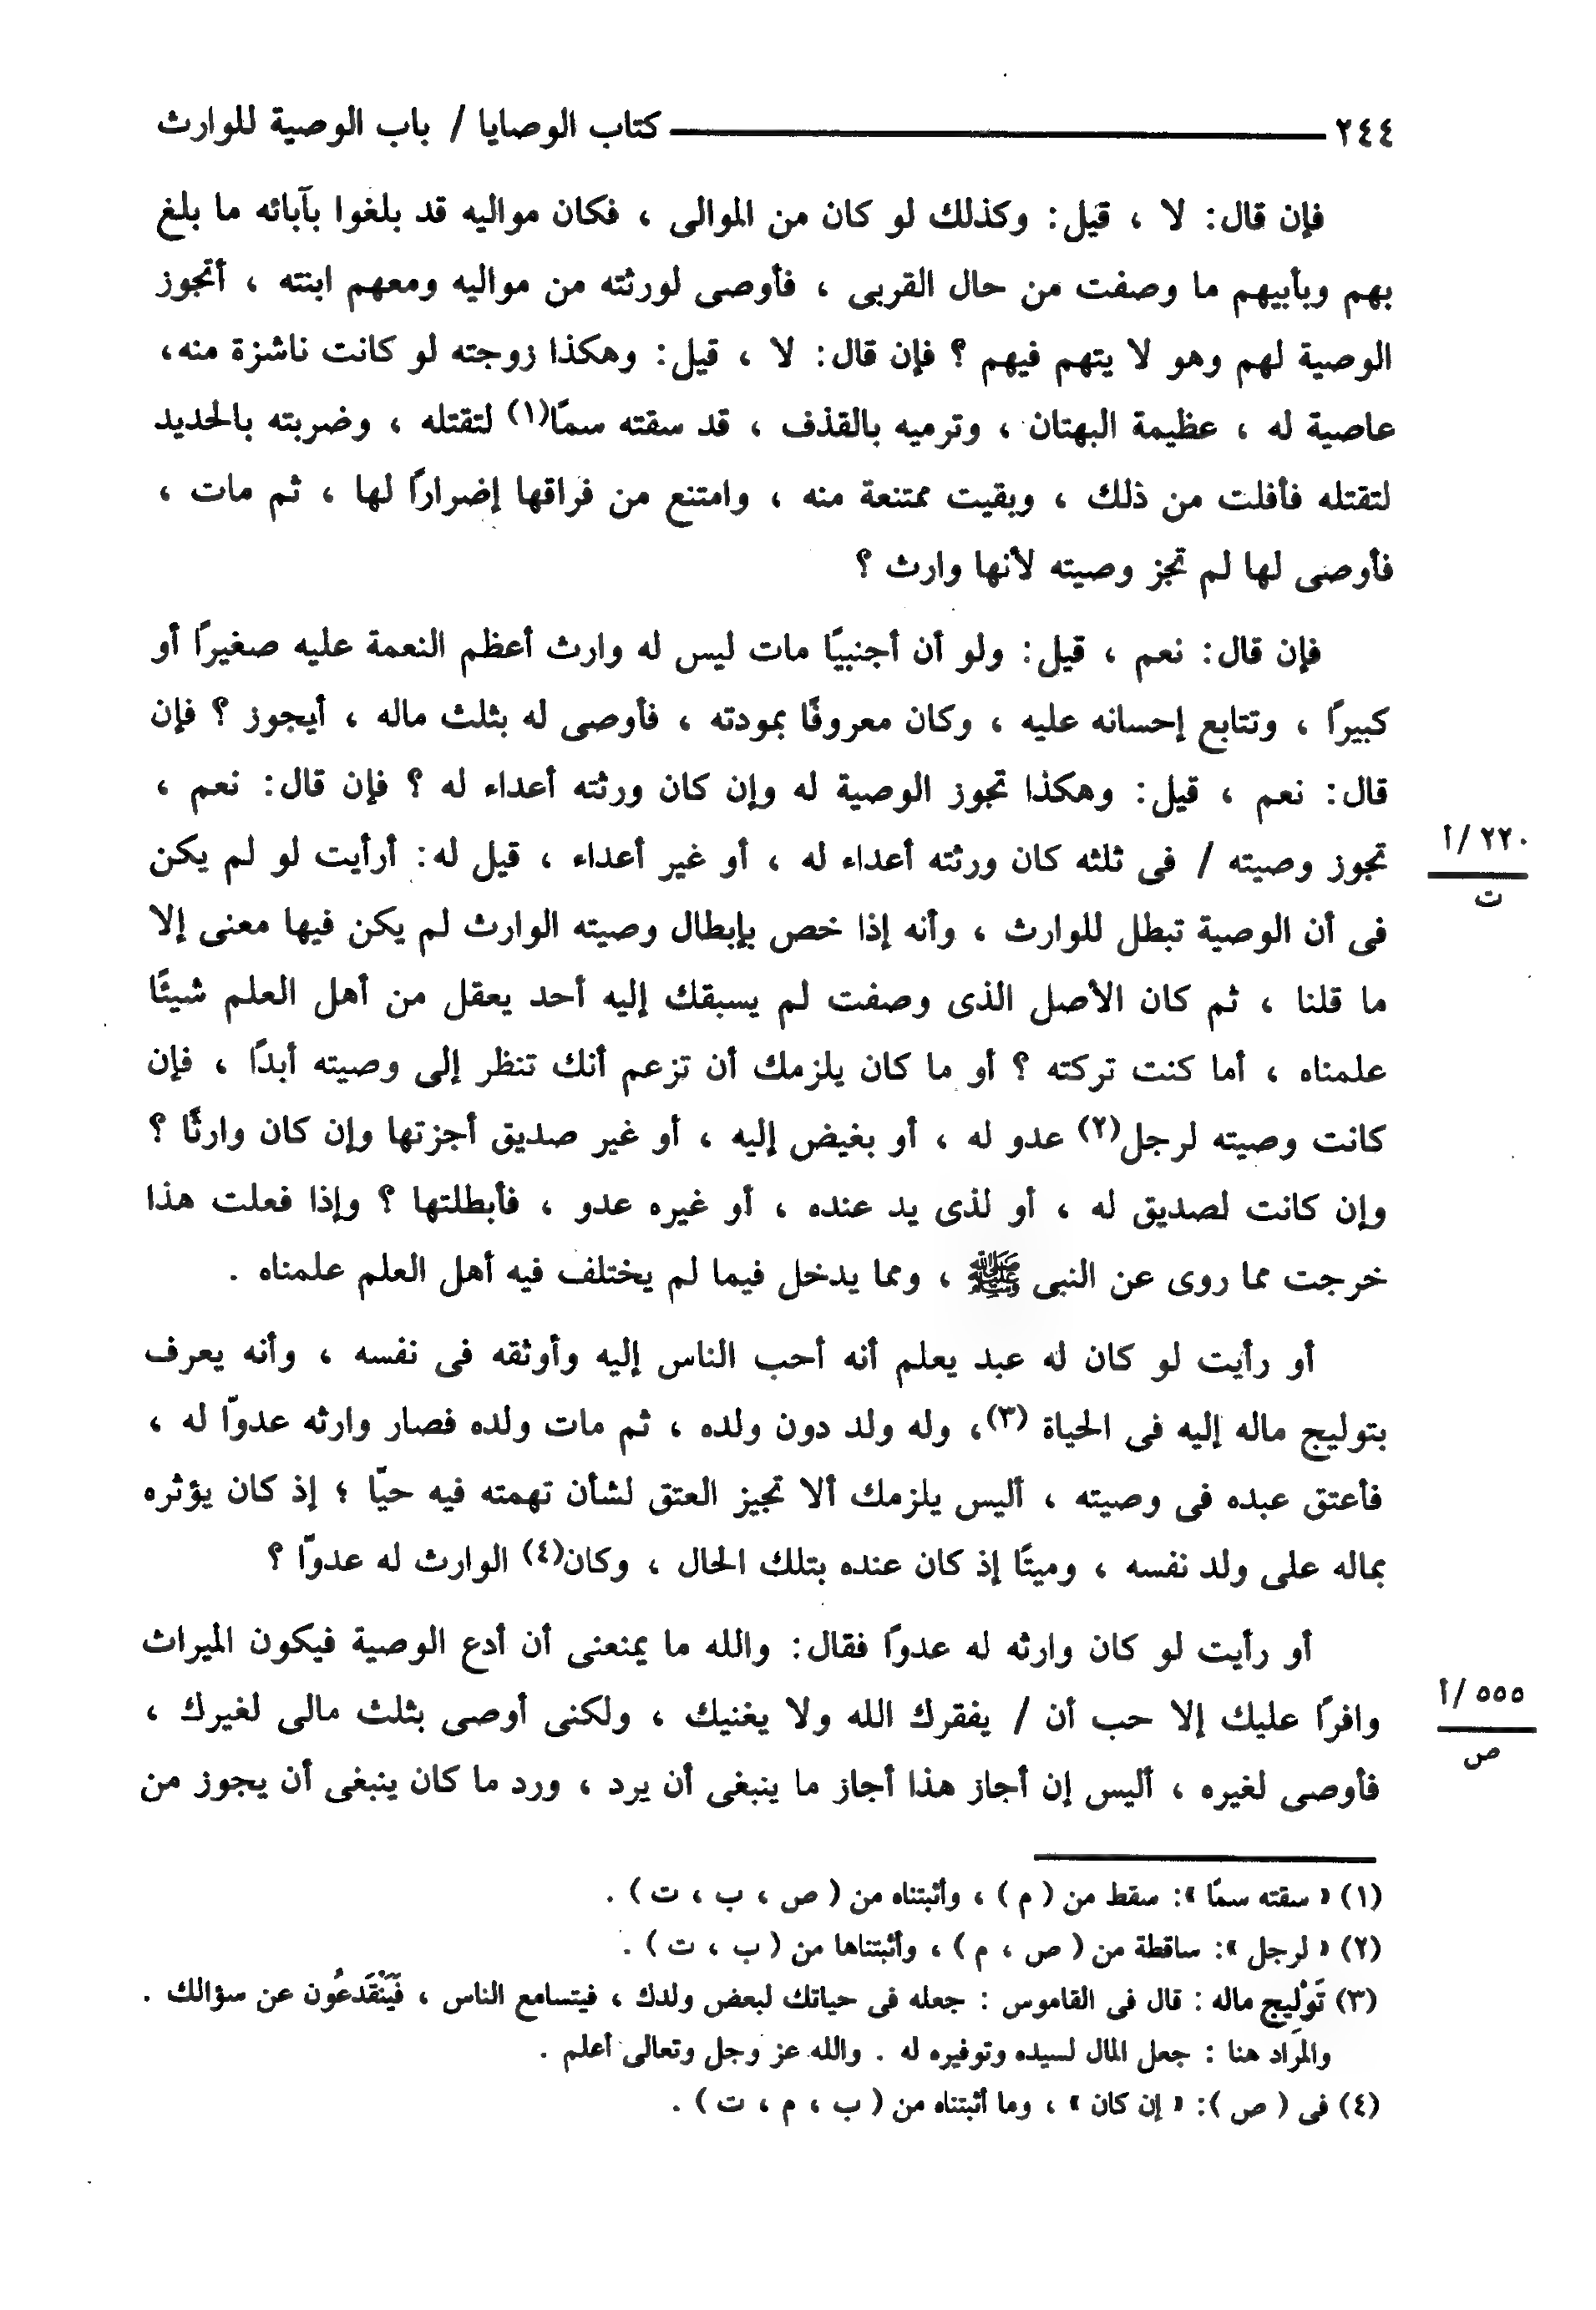 ٢٤٤ كتاب الوصايا / باب الوصية للوارث
فإن قال: لا ، قيل: وكذلك لو كان من الموالى ، فكان مواليه قد بلغوا بآبائه ما بلغ
بهم وبأبيهم ما وصفت من حال القربى ، فأوصى لورثته من مواليه ومعهم ابنته ، أتجوز
الوصية لهم وهو لا يتهم فيهم ؟ فإن قال: لا ، قيل: وهكذا زوجته لو كانت ناشزة منه،
عاصية له ، عظيمة البهتان ، وترميه بالقذف ، قد سقته سمًا(١) لتقتله ، وضربته بالحديد
لتقتله فأفلت من ذلك ، وبقيت ممتنعة منه ، وامتنع من فراقها إضرارًا لها ، ثم مات ،
فأوصى لها لم تجز وصيته لأنها وارث ؟
فإن قال: نعم ، قيل: ولو أن أجنبيًا مات ليس له وارث أعظم النعمة عليه صغيرًا أو
كبيرًا ، وتتابع إحسانه عليه ، وكان معروفًا بمودته ، فأوصى له بثلث ماله ، أيجوز ؟ فإن
قال: نعم ، قيل: وهكذا تجوز الوصية له وإن كان ورثته أعداء له ؟ فإن قال: نعم ،
تجوز وصيته / فى ثلثه كان ورثته أعداء له ، أو غير أعداء ، قيل له: أرأيت لو لم يكن
٢٢٠ /أ
ت
فى أن الوصية تبطل للوارث ، وأنه إذا خص بإبطال وصيته الوارث لم يكن فيها معنى إلا
ما قلنا ، ثم كان الأصل الذى وصفت لم يسبقك إليه أحد يعقل من أهل العلم شيئًا
علمناه ، أما كنت تركته ؟ أو ما كان يلزمك أن تزعم أنك تنظر إلى وصيته أبدًا ، فإن
كانت وصيته لرجل(٢) عدو له ، أو بغيض إليه ، أو غير صديق أجزتها وإن كان وارثًا ؟
وإن كانت لصديق له ، أو لذى يد عنده ، أو غيره عدو ، فأبطلتها ؟ وإذا فعلت هذا
خرجت مما روى عن النبى ﷺ ، ومما يدخل فيما لم يختلف فيه أهل العلم علمناه .
أو رأيت لو كان له عبد يعلم أنه أحب الناس إليه وأوثقه فى نفسه ، وأنه يعرف
بتوليج ماله إليه فى الحياة (٣)، وله ولد دون ولده ، ثم مات ولده فصار وارثه عدوّا له ،
فأعتق عبده فى وصيته ، أليس يلزمك ألا تجيز العتق لشأن تهمته فيه حيّا ؛ إذ كان يؤثره
بماله على ولد نفسه ، وميتًا إذ كان عنده بتلك الحال ، وكان(٤) الوارث له عدوّا ؟
أو رأيت لو كان وارثه له عدوًا فقال: والله ما يمنعنى أن أدع الوصية فيكون الميراث
وافرًا عليك إلا حب أن / يفقرك الله ولا يغنيك ، ولكنى أوصى بثلث مالى لغيرك ،
٥٥٥ /أ
ص
فأوصى لغيره ، أليس إن أجاز هذا أجاز ما ينبغى أن يرد ، ورد ما كان ينبغى أن يجوز من
(١) « سقته سمًا »: سقط من ( م ) ، وأثبتناه من ( ص ، ب ، ت ) .
(٢) « لرجل »: ساقطة من ( ص ، م ) ، وأثبتناها من ( ب ، ت ) .
(٣) تَوْلِيج ماله : قال فى القاموس : جعله فى حياتك لبعض ولدك ، فيتسامع الناس ، فَيَنْقَدعُون عن سؤالك .
والمراد هنا : جعل المال لسيده وتوفيره له . والله عز وجل وتعالى أعلم .
(٤) فى ( ص ): « إن كان » ، وما أثبتناه من ( ب ، م ، ت ) .